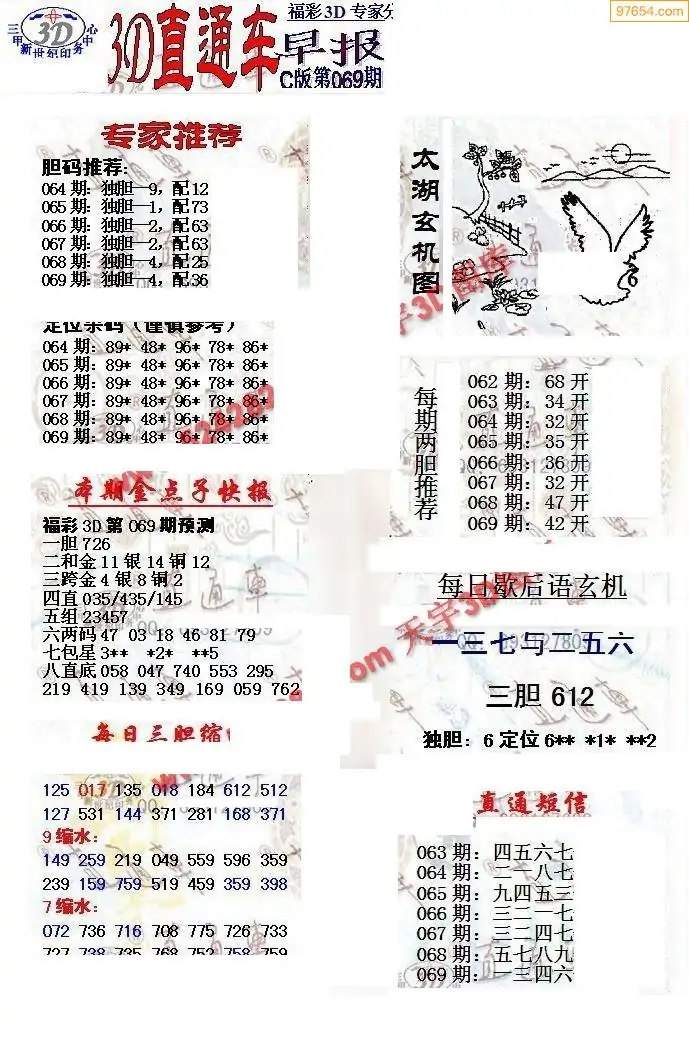 97654.com
福彩3D专家
三甲
3D
中心
新世纪印务
3D直通车
早报
C版第069期
专家推荐
胆码推荐:
064期: 独胆—9, 配12
065期: 独胆—1, 配73
066期: 独胆—2, 配63
067期: 独胆—2, 配63
068期: 独胆—4, 配25
069期: 独胆—4, 配36
定位杀码(谨慎参考)
064期: 89* 48* 96* 78* 86*
065期: 89* 48* 96* 78* 86*
066期: 89* 48* 96* 78* 86*
067期: 89* 48* 96* 78* 86*
068期: 89* 48* 96* 78* 86*
069期: 89* 48* 96* 78* 86*
本期金点子快报
福彩3D第069期预测
一胆726
二和金11银14铜12
三跨金4银8铜2
四直035/435/145
五组23457
六两码47 03 18 46 81 79
七包星3** *2* **5
八直底058 047 740 553 295
219 419 139 349 169 059 762
每日三胆缩
125 017 135 018 184 612 512
127 531 144 371 281 168 371
9缩水:
149 259 219 049 559 596 359
239 159 759 519 459 359 398
7缩水:
072 736 716 708 775 726 733
727 738 735 768 752 758 759
太湖玄机图
每期两胆推荐
062期: 68开
063期: 34开
064期: 32开
065期: 35开
066期: 36开
067期: 32开
068期: 47开
069期: 42开
每日歇后语玄机
一三七与一五六
三胆 612
独胆: 6 定位 6** *1* **2
直通短信
063期: 四五六七
064期: 二一八七
065期: 九四五三
066期: 三二一七
067期: 三二四七
068期: 五七八九
069期: 一三四六